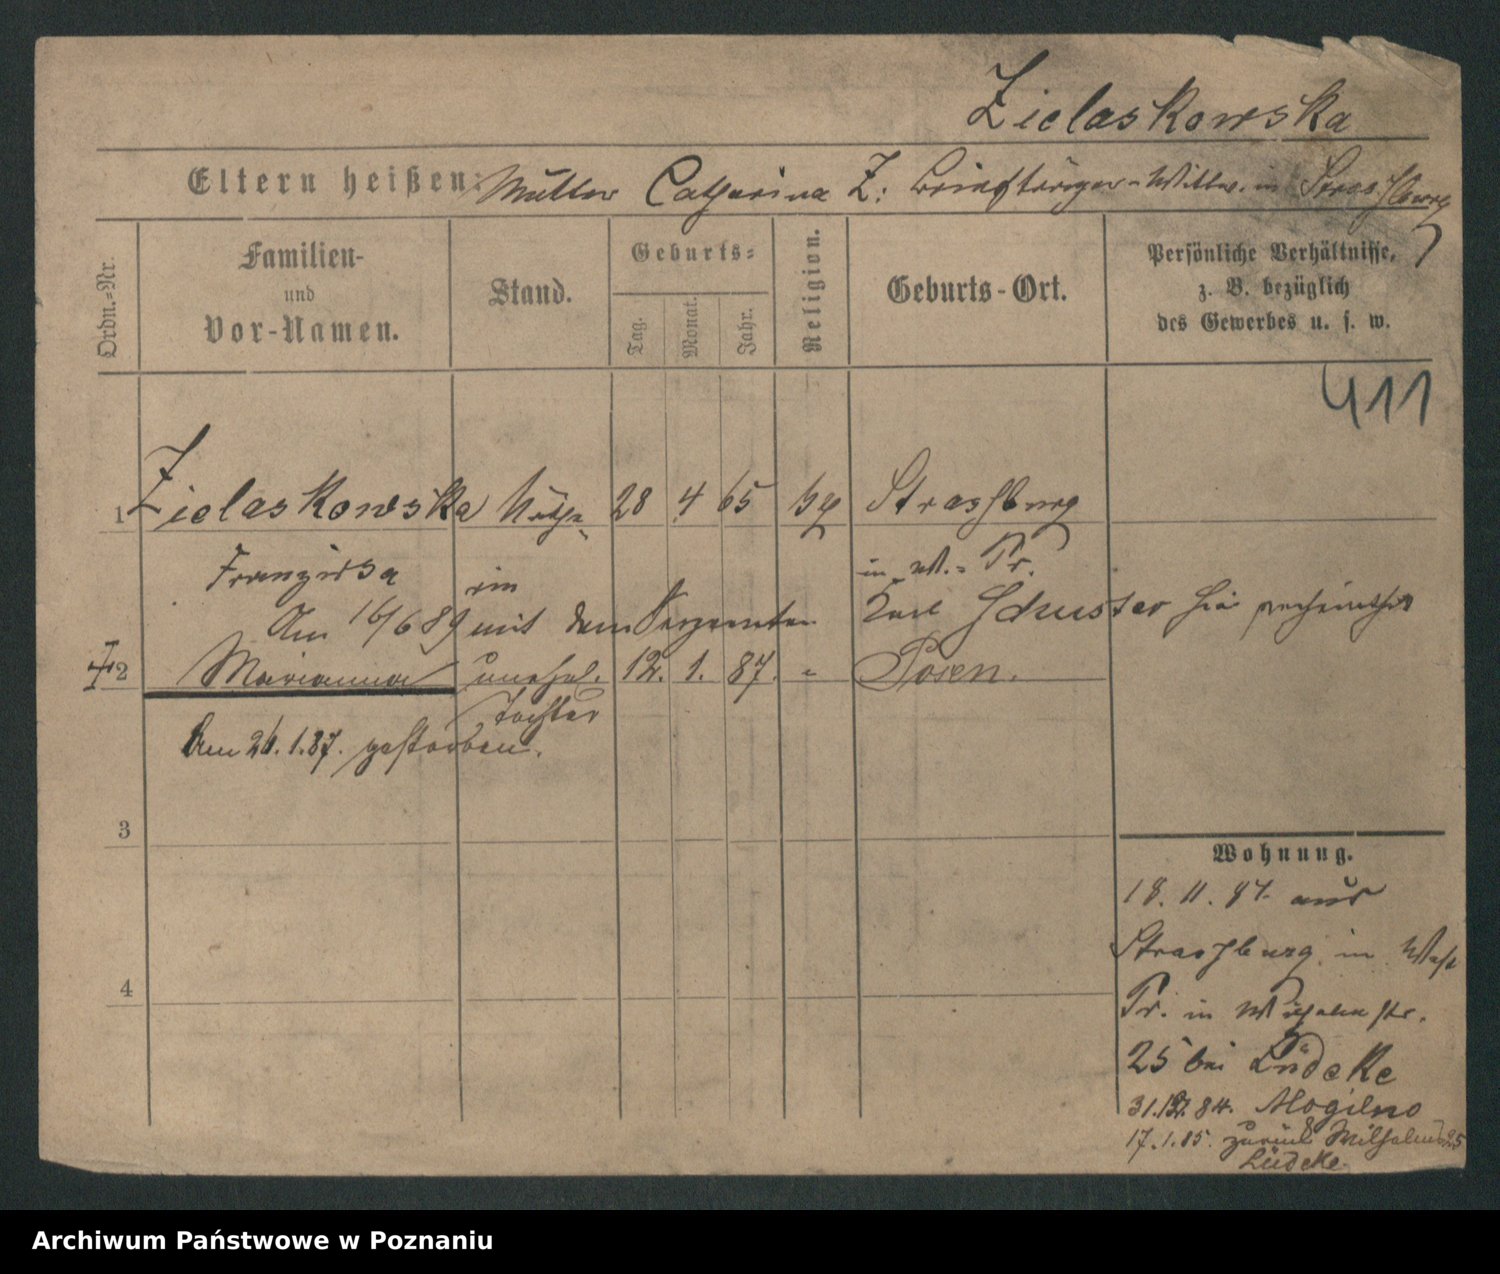 Zielaskowska
Eltern heißen: Mutter Catharina Z: Briefträger-Wittwe in Strasburg
Ordn.=Nr.
Familien-
und
Vor-Namen.
Stand.
Geburts=
Tag.
Monat.
Jahr.
Religion.
Geburts-Ort.
Persönliche Verhältnisse,
z. B. bezüglich
des Gewerbes u. s. w.
411
1 Zielaskowska Köch- 28 4 65 Strasburg
Franziska in in W.=Pr.
Am 16/6 89 mit dem Sergeanten Karl Schuster hier verheirathet
2 Marianna unehel. 12. 1. 87. " Posen.
Tochter
Am 26.1.87. gestorben.
3
4
Wohnung.
18. 11. 84. aus
Strasburg in West
Pr. in Wilhelmstr.
25 bei Lüdeke
31.12.84. Mogilno
17.1.85. zurück Wilhelmstr 25
Lüdeke